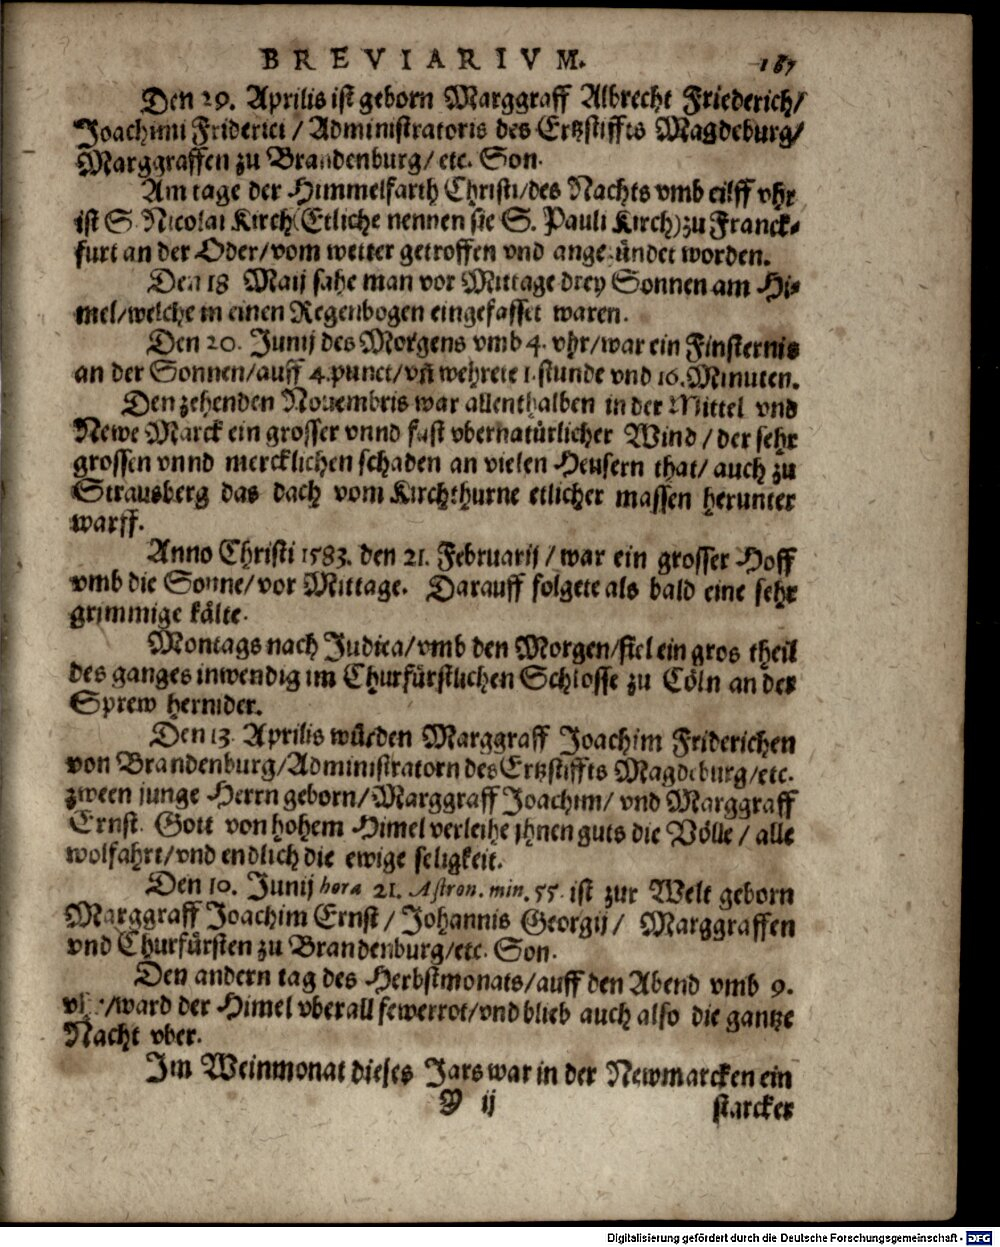 BREVIARIVM. 187
Den 29. Aprilis ist geborn Marggraff Albrecht Friederich/
Joachimi Friderici / Administratoris des Ertzstiffts Magdeburg/
Marggraffen zu Brandenburg/ etc. Son.
Am tage der Himmelfarth Christi/des Nachts vmb eilff vhr
ist S. Nicolai Kirch(Etliche nennen sie S. Pauli Kirch)zu Franck-
furt an der Oder/vom wetter getroffen vnd angezündet worden.
Den 18 Maij sahe man vor Mittage drey Sonnen am Hi-
mel/welche in einen Regenbogen eingefasset waren.
Den 20. Junij des Morgens vmb 4. vhr/war ein Finsternis
an der Sonnen/auff 4.punct/vñ wehrete 1.stunde vnd 16.Minuten.
Den zehenden Nouembris war allenthalben in der Mittel vnd
Newe Marck ein grosser vnnd fast vbernatürlicher Wind / der sehr
grossen vnnd mercklichen schaden an vielen Heusern that/ auch zu
Strausberg das dach vom Kirchthurne etlicher massen herunter
warff.
Anno Christi 1583. den 21. Februarij / war ein grosser Hoff
vmb die Sonne/vor Mittage. Darauff folgete als bald eine sehr
grimmige kälte.
Montags nach Judica/vmb den Morgen/fiel ein gros theil
des ganges inwendig im Churfürstlichen Schlosse zu Cöln an der
Sprew hernider.
Den 13. Aprilis würden Marggraff Joachim Friderichen
von Brandenburg/Administratorn des Ertzstiffts Magdeburg/etc.
zween junge Herrn geborn/Marggraff Joachim/ vnd Marggraff
Ernst. Gott von hohem Himel verleihe jhnen guts die Völle / alle
wolfahrt/vnd endlich die ewige seligkeit.
Den 10. Junij hora 21. Astron. min. 55. ist zur Welt geborn
Marggraff Joachim Ernst / Johannis Georgij / Marggraffen
vnd Churfürsten zu Brandenburg/etc. Son.
Den andern tag des Herbstmonats/auff den Abend vmb 9.
vhr/ward der Himel vberall fewerrot/vnd blieb auch also die gantze
Nacht vber.
Im Weinmonat dieses Jars war in der Newmarcken ein
Y ij starcker
Digitalisierung gefördert durch die Deutsche Forschungsgemeinschaft - DFG